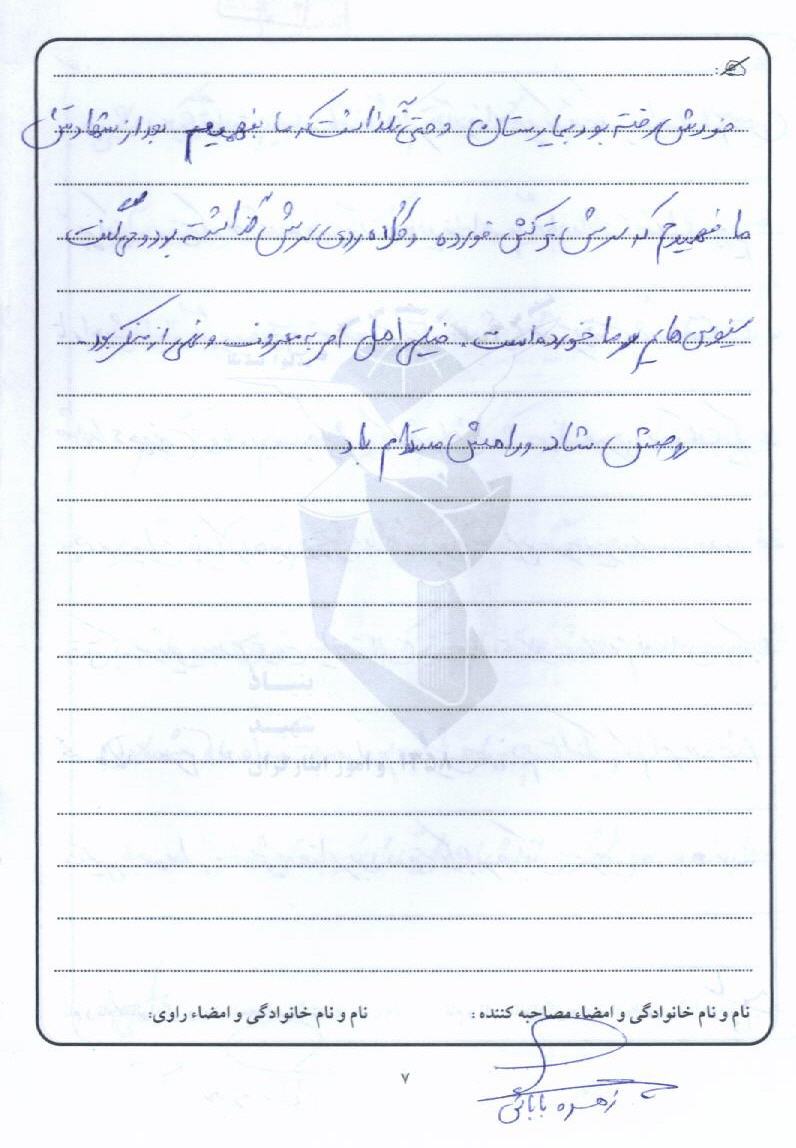 خودش رفته بود بیمارستان و حتی نگذاشت که ما بفهمیم بعد از شهادتش
ما فهمیدیم که سرش ترکش خورده و کلاه روی سرش گذاشته بود و می گفت
سینوس هایم سرما خورده است. خیلی اهل امر به معروف و نهی از منکر بود.
روحش شاد و راهش مستدام باد
بنیاد
شهید
و امور ایثارگران
نام و نام خانوادگی و امضاء مصاحبه کننده :
نام و نام خانوادگی و امضاء راوی:
۷
زهره بابائی